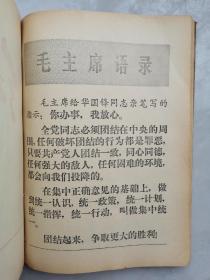 毛主席语录
毛主席给华国锋同志亲笔写的
指示：你办事，我放心。
全党同志必须团结在中央的周
围，任何破坏团结的行为都是罪恶，
只要共产党人团结一致，同心同德，
任何强大的敌人，任何困难的环境，
都会向我们投降的。
在集中正确意见的基础上，做
到统一认识，统一政策，统一计划，
统一指挥，统一行动，叫做集中统
一。
团结起来，争取更大的胜利！